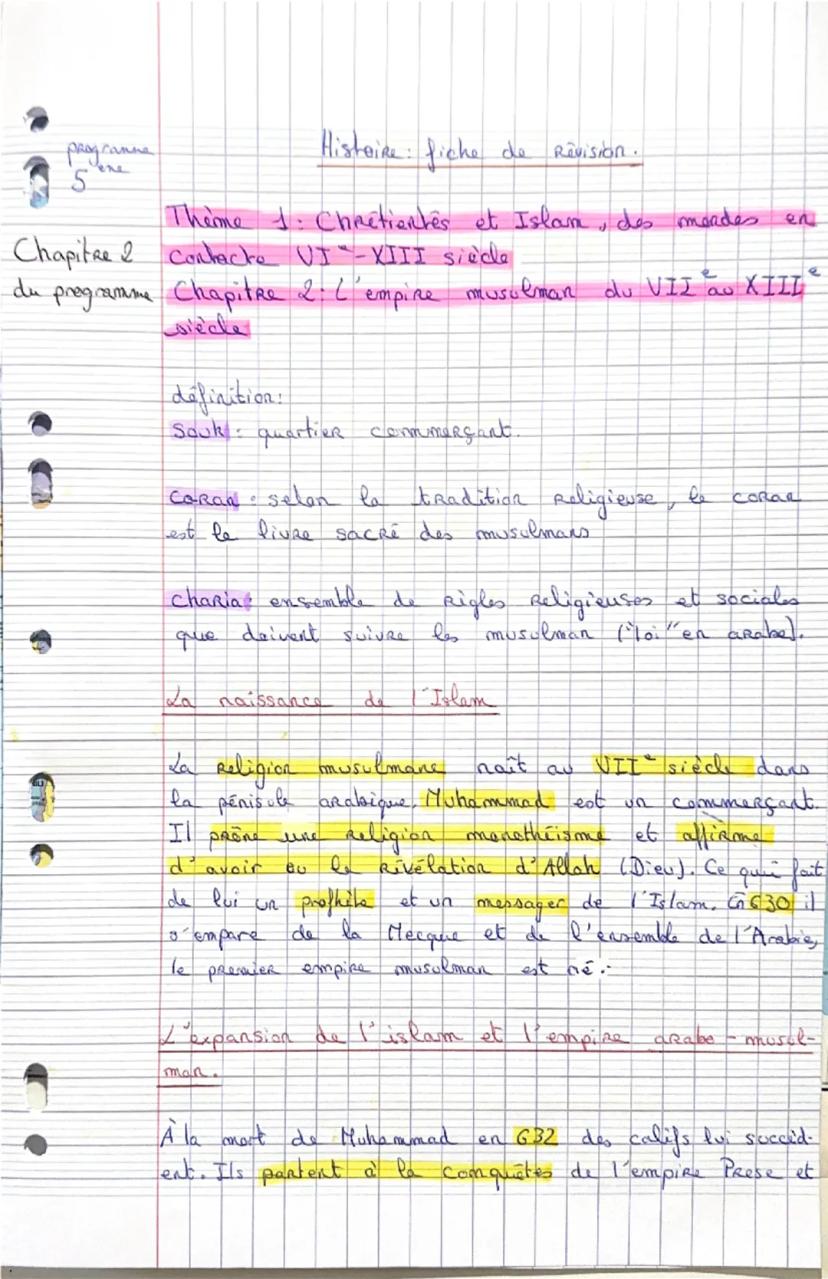 Histoire: fiche de révision.
programme
5ème
Thème 1: Chrétientés et Islam, des mondes en
contacte VIe-XIII siècle
Chapitre 2
du programme
Chapitre 2: L'empire musulman du VIIe au XIIIe
siècle
définition:
Souk: quartier commerçant.
Coran: selon la tradition religieuse, le coran
est le livre sacré des musulmans
Charia: ensemble de règles religieuses et sociales
que doivent suivre les musulman ("loi" en arabe).
La naissance de l'Islam
La religion musulmane naît au VIIe siècle dans
la pénisule arabique. Muhammad est un commerçant.
Il prône une religion monothéisme et affirme
d'avoir eu la révélation d'Allah (Dieu). Ce qui fait
de lui un prophète et un messager de l'Islam. En 630 il
s'empare de la Mecque et de l'ensemble de l'Arabie,
le premier empire musulman est né.
L'expansion de l'islam et l'empire arabo-musul-
man.
À la mort de Muhammad en 632 des califs lui succéd-
ent. Ils partent à la conquêtes de l'empire Prese et